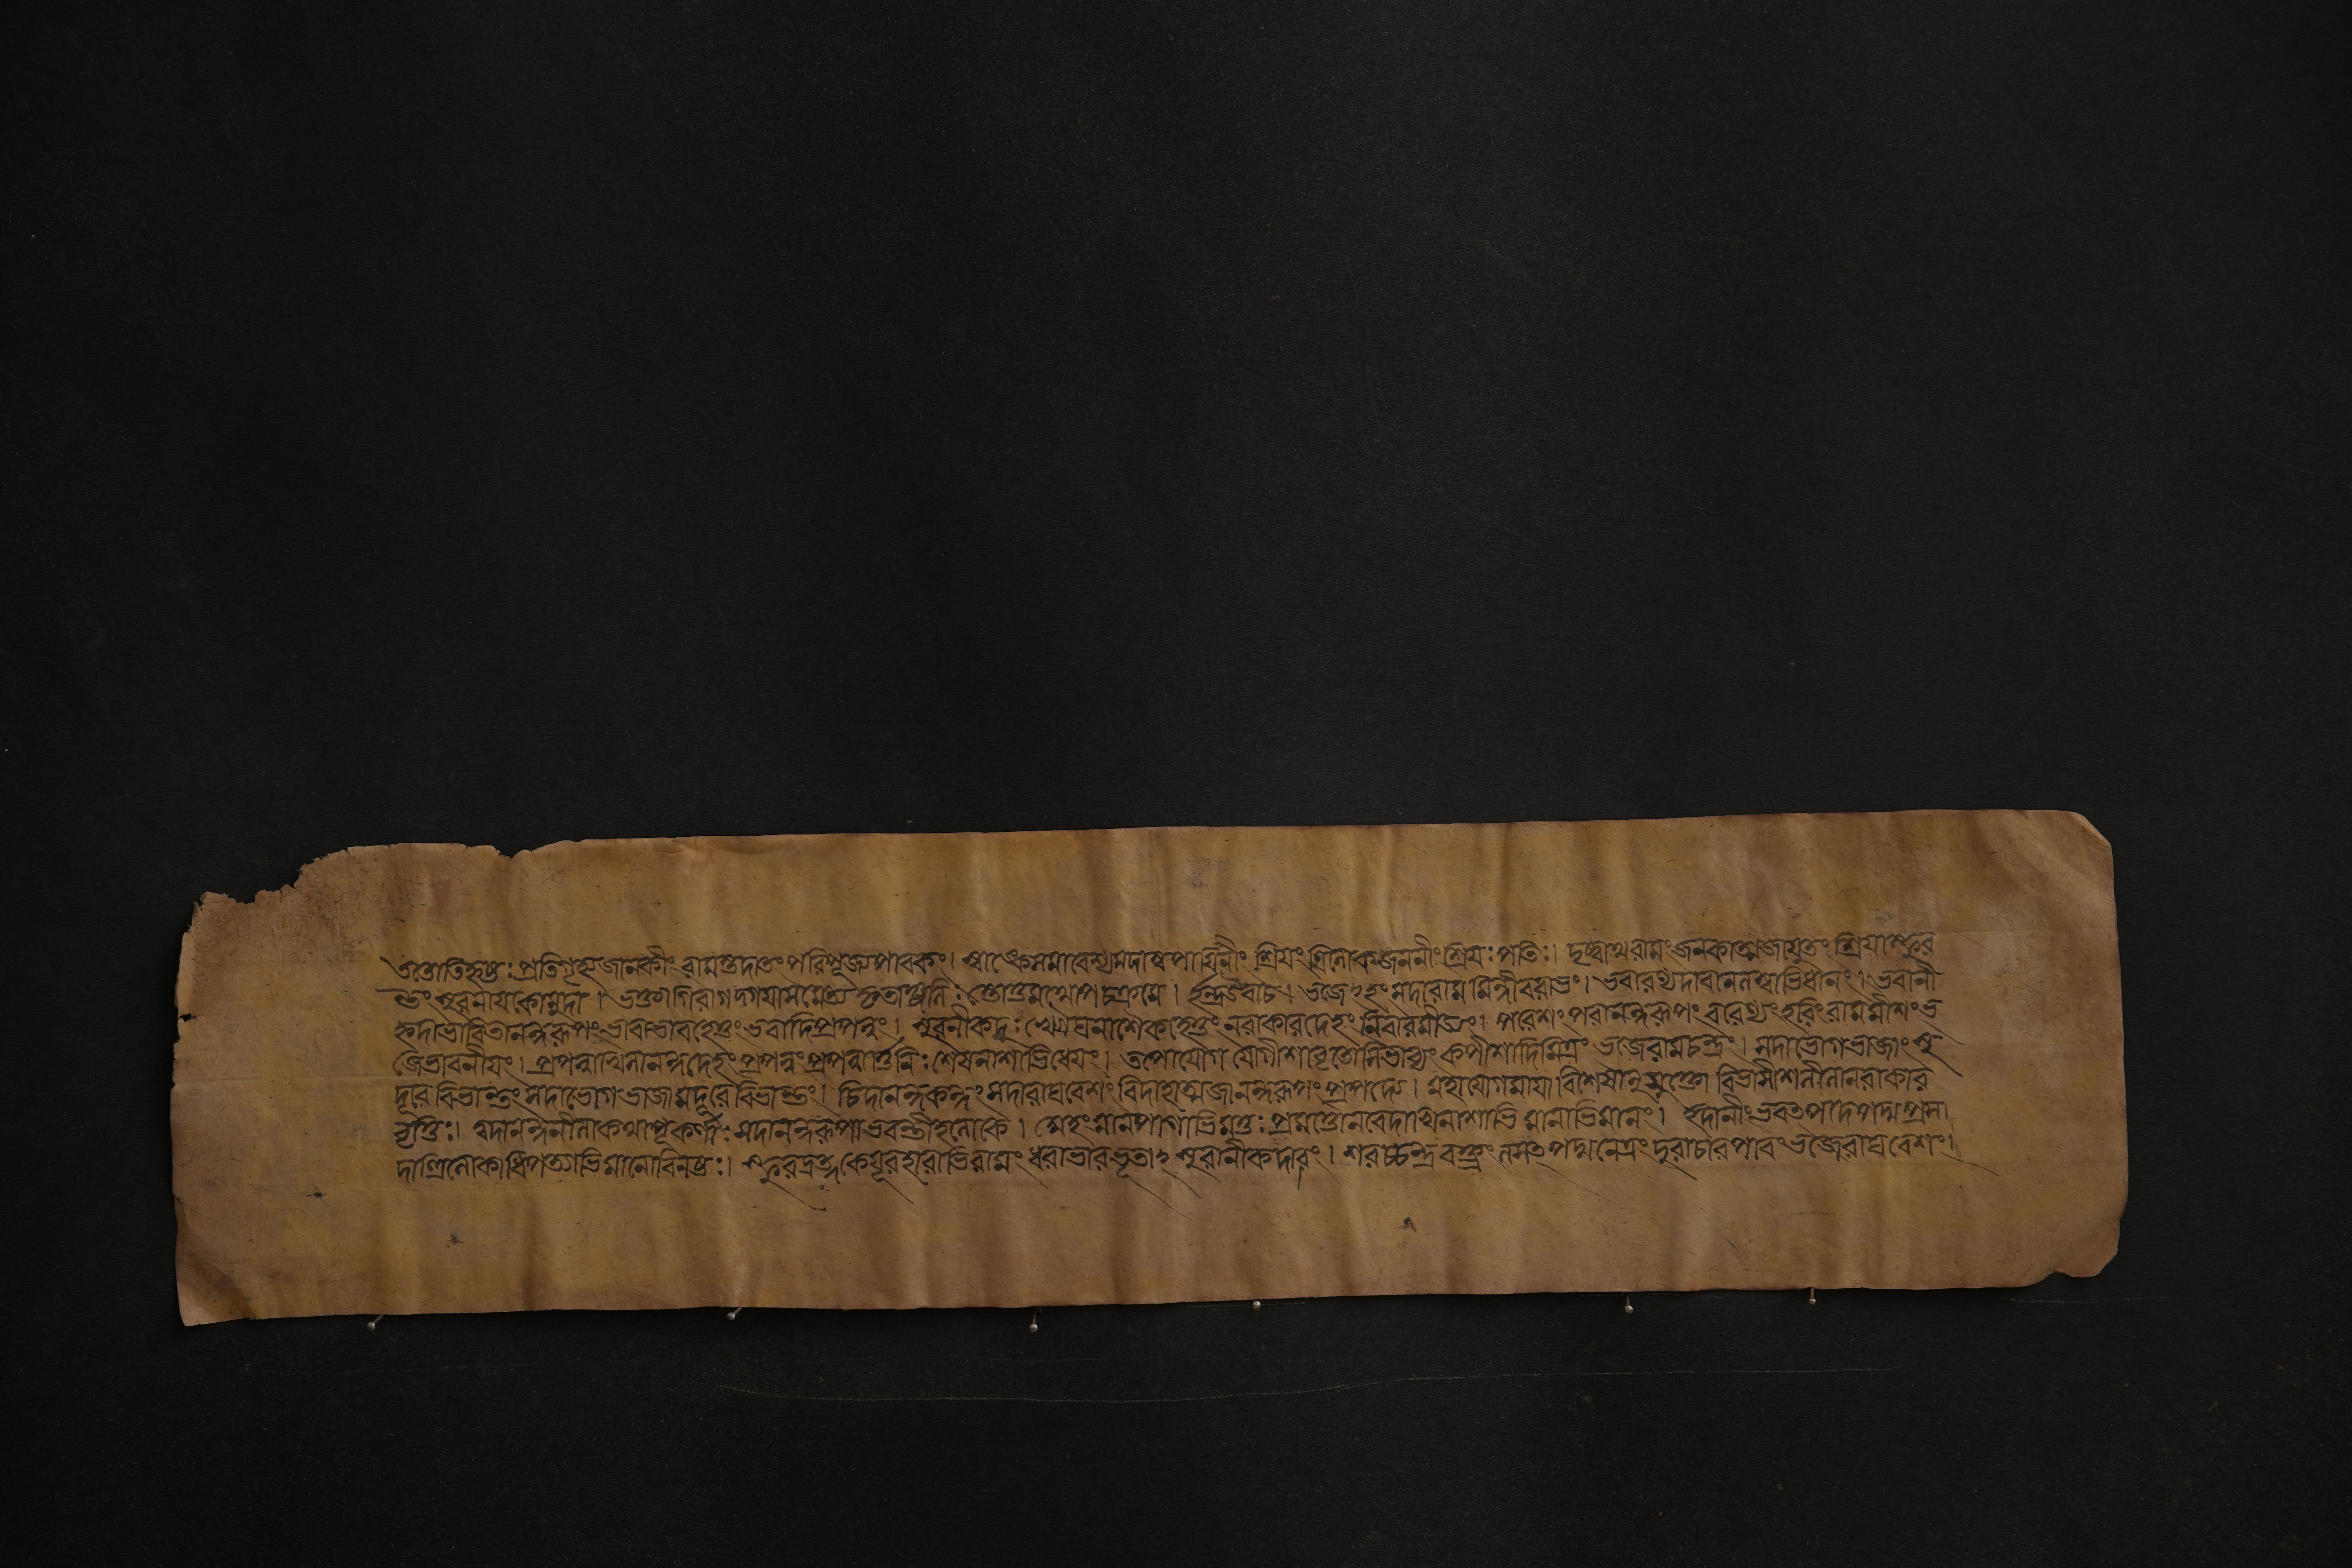 ততোতিহৃষ্টঃপ্রতিগৃহ্যজানকীং রামস্তদাতংপরিপূজ্যপাবকং। স্বাঙ্কেসমাবেশ্যসদানপায়িনীং শ্রিয়ং ত্রিলোকজননীংশ্রিয়ঃপতিঃ। দৃষ্ট্বাথরামংজনকাত্মজাযুতং শ্রিয়াস্ফুর
ন্তংসুরনায়কোমুদা। ভক্ত্যাগিরাগদ্গদয়াসমেত্য কৃতাঞ্জলিঃস্তোতুমথোপচক্রমে। ইন্দ্রউবাচ। ভজেঽহংসদারামমিন্দীবরাভং। ভবারণ্যদাবানলাভাভিধানং। ভবানী
হৃদাভাবিতানন্দরূপংভাবাভাবহেতুংভবাদিপ্রপন্নং। সুরানীকদুঃখৌঘনাশৈকহেতুংনরাকারদেহংনিরাকারমীড্যং। পরেশংপরানন্দরূপংবরেণ্যংহরিংরামমীশংভ
জেভাবনীয়ং। প্রপন্নাখিলানন্দদেহংপ্রপন্নংপ্রপন্নার্ত্তিনিঃশেষনাশাভিধেয়ং। তপোযোগ যোগীশভাবাভিভাব্যংকপীশাদিমিত্রং ভজেরামচন্দ্রং। সদাভোগভাজাংসু
দূরেবিভান্তংসদাযোগভাজামদূরেবিভান্তং। চিদানন্দকন্দংসদারাঘবেশং বিদেহাত্মজানন্দরূপংপ্রপদ্যে। মহাযোগমায়াবিশেষানুযুক্তো বিভাসীশলীলানরাকার
বৃত্তিঃ। ত্বদানন্দলীলাকথাপূর্ণকর্ণাঃসদানন্দরূপাভবন্তীহলোকে। অহংমানপানাভিমত্তঃপ্রমত্তোনবেদাখিলেশাভিমানাভিমানং। ইদানীংভবৎপাদপদ্মপ্রসা
দাত্ত্রিলোকাধিপত্যাভিমানোবিনষ্টঃ। স্ফুরদ্রত্নকেয়ূরহারাভিরামংধরাভারভূতাঽসুরানীকদাবং। শরচ্চন্দ্রবক্ত্রংলসৎপদ্মনেত্রংদুরাচারপারংভজেরাঘবেশং।